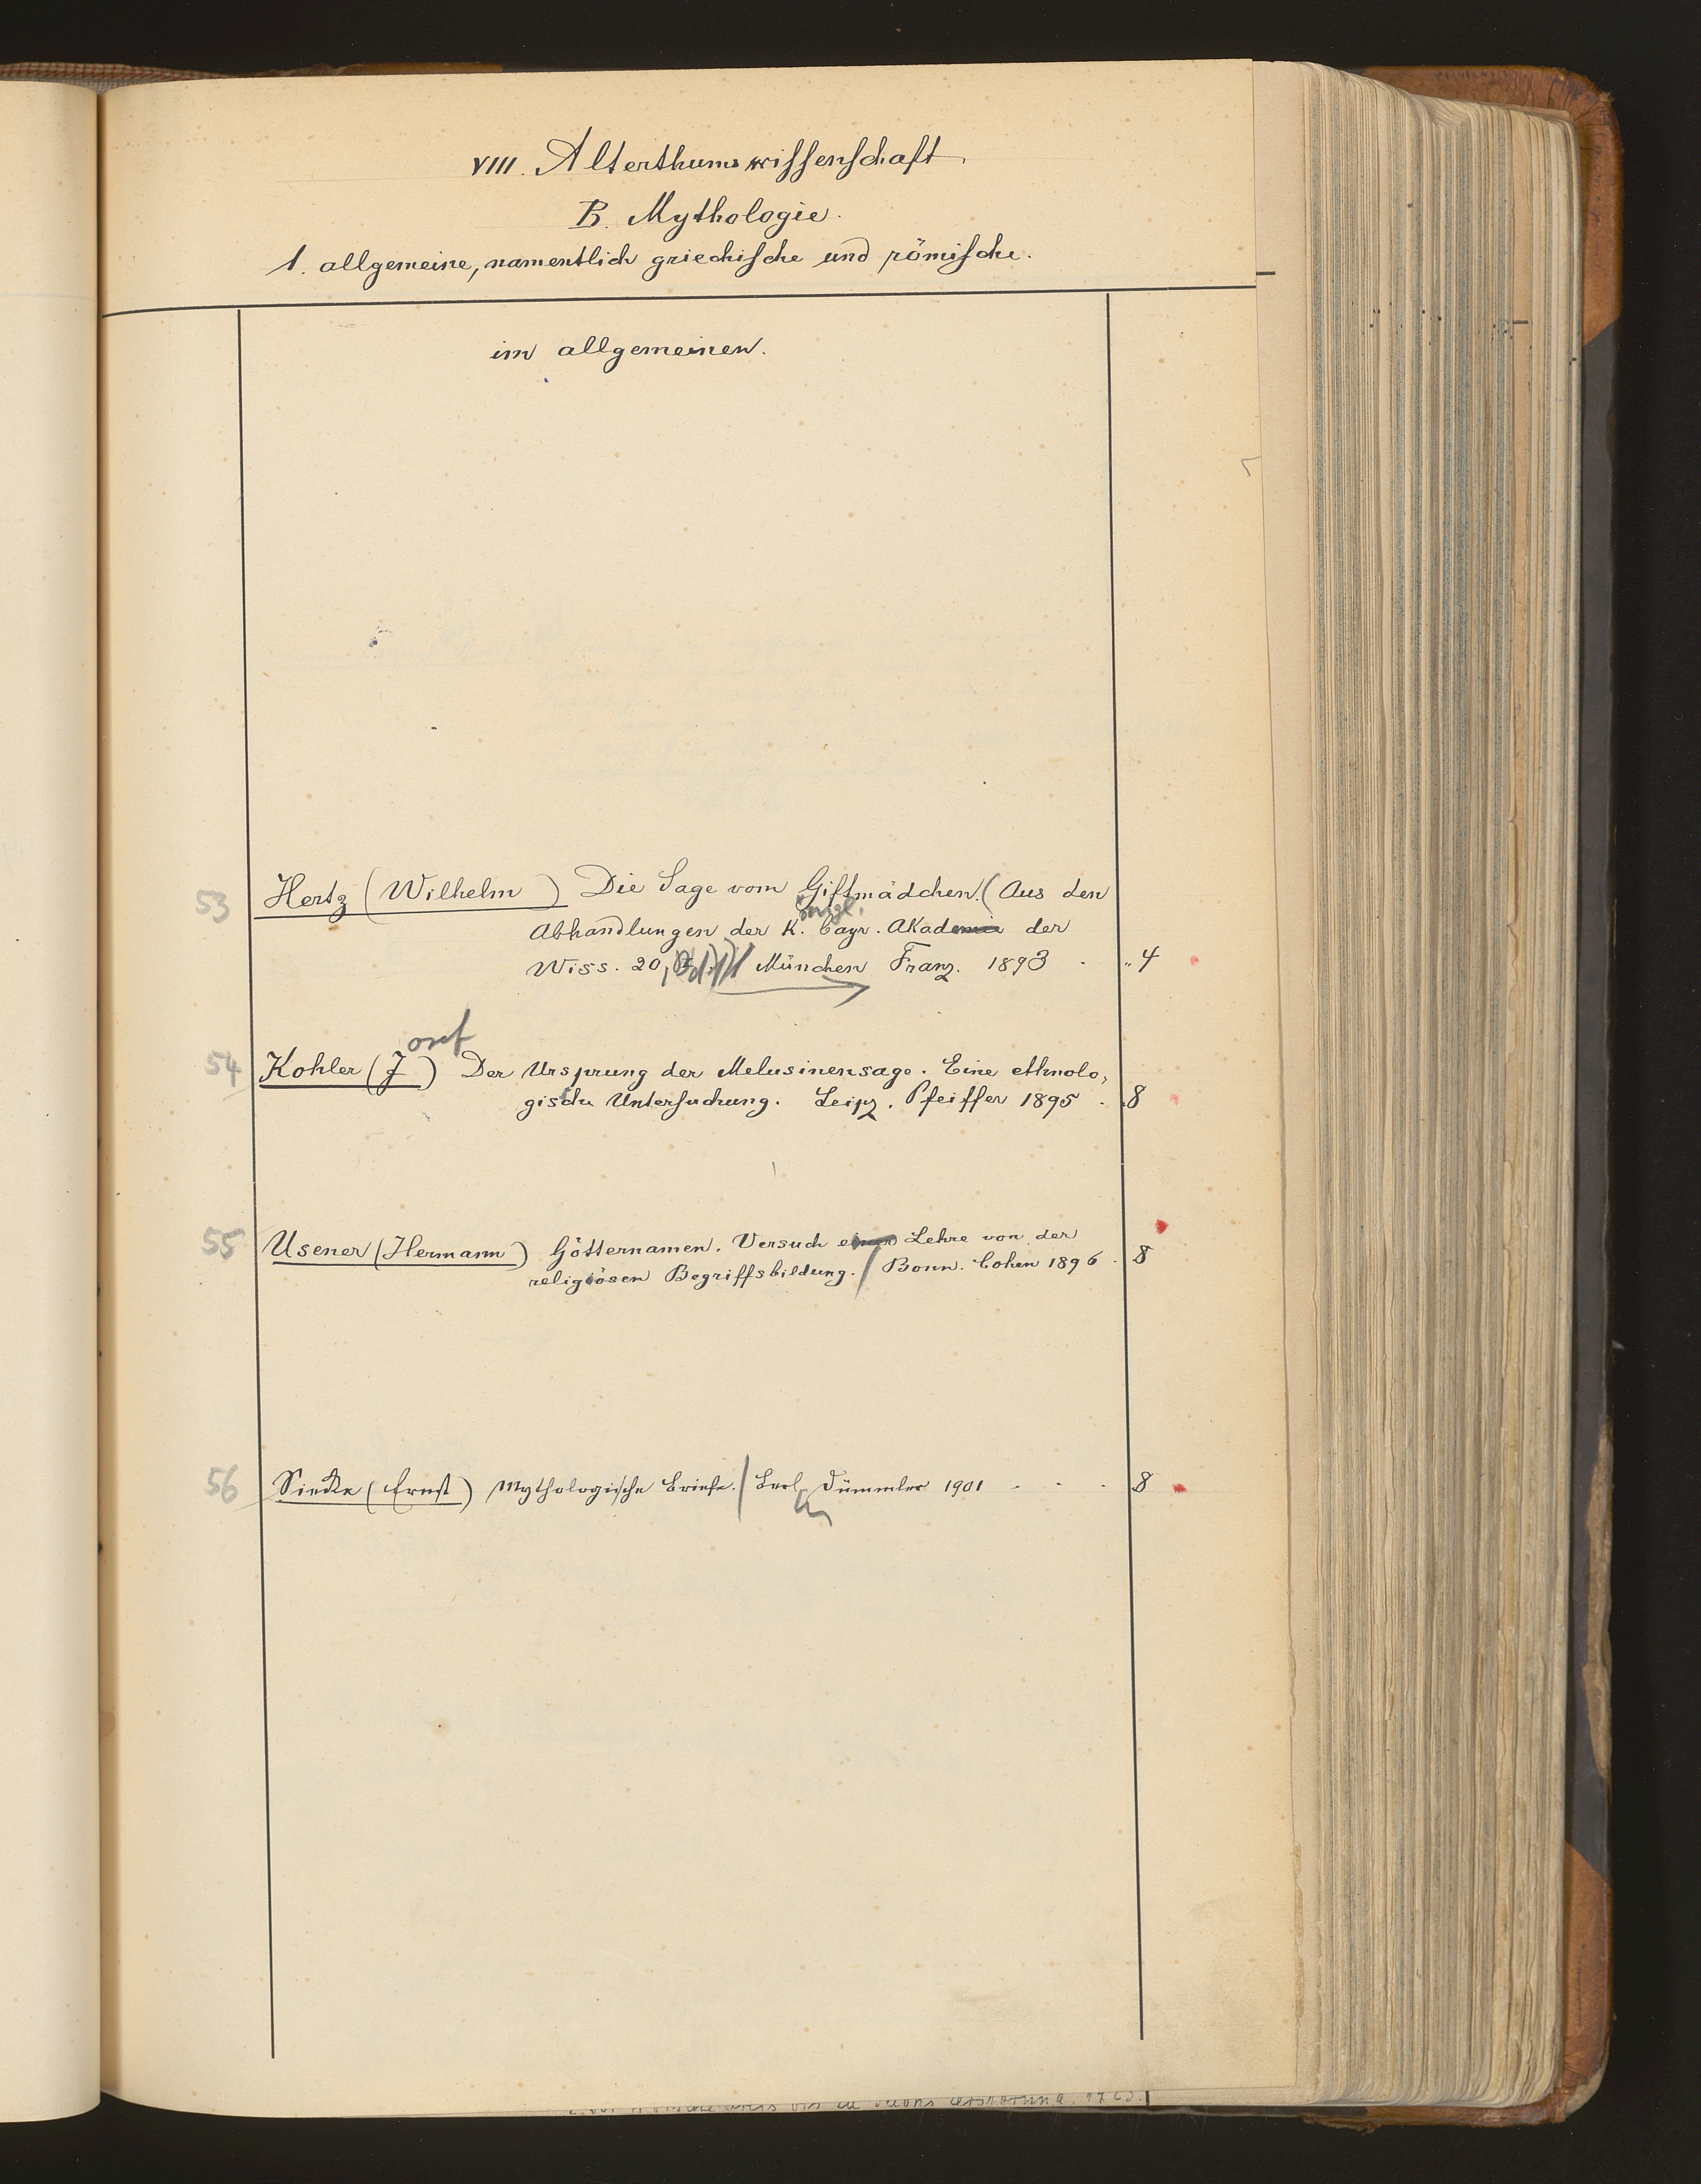 VIII. Alterthumswissenschaft
B. Mythologie.
1. allgemeine, namentlich griechische und römische.
im allgemeinen.
53 Hertz (Wilhelm) Die Sage vom Giftmädchen. (Aus den
Abhandlungen der K. bayr. Akademie der
Wiss. 20, München Franz. 1893 . „ 4
54 Kohler (Josef) Der Ursprung der Melusinensage. Eine ethnolo-
gische Untersuchung. Leipz. Pfeiffer 1895 . 8
55 Usener (Hermann) Götternamen. Versuch einer Lehre von der
religiösen Begriffsbildung. / Bonn. Cohen 1896 . 8
56 Siecke (Ernst) Mythologische Briefe. / Berl. Dümmler 1901 . . . 8